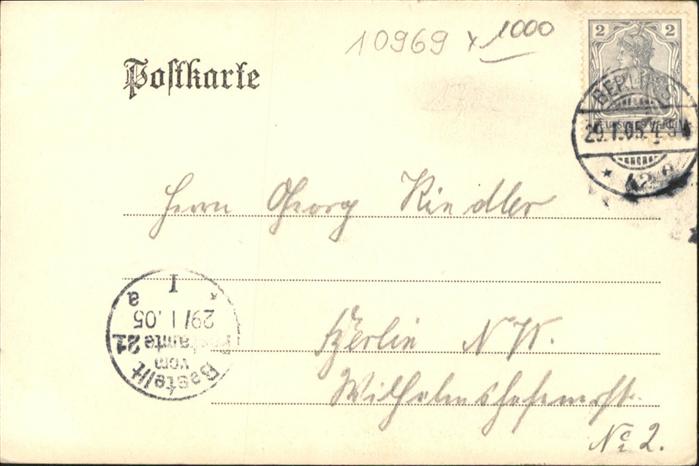 10969 x 1000
Postkarte
2 2
BERLIN S
29.1.05.4-5N
* 42 a
Herrn Georg Rindler
Berlin N.W.
Wilhelmshafenerstr.
No 2.
Bestellt
vom
Postamte 21
29/1.05
* I a